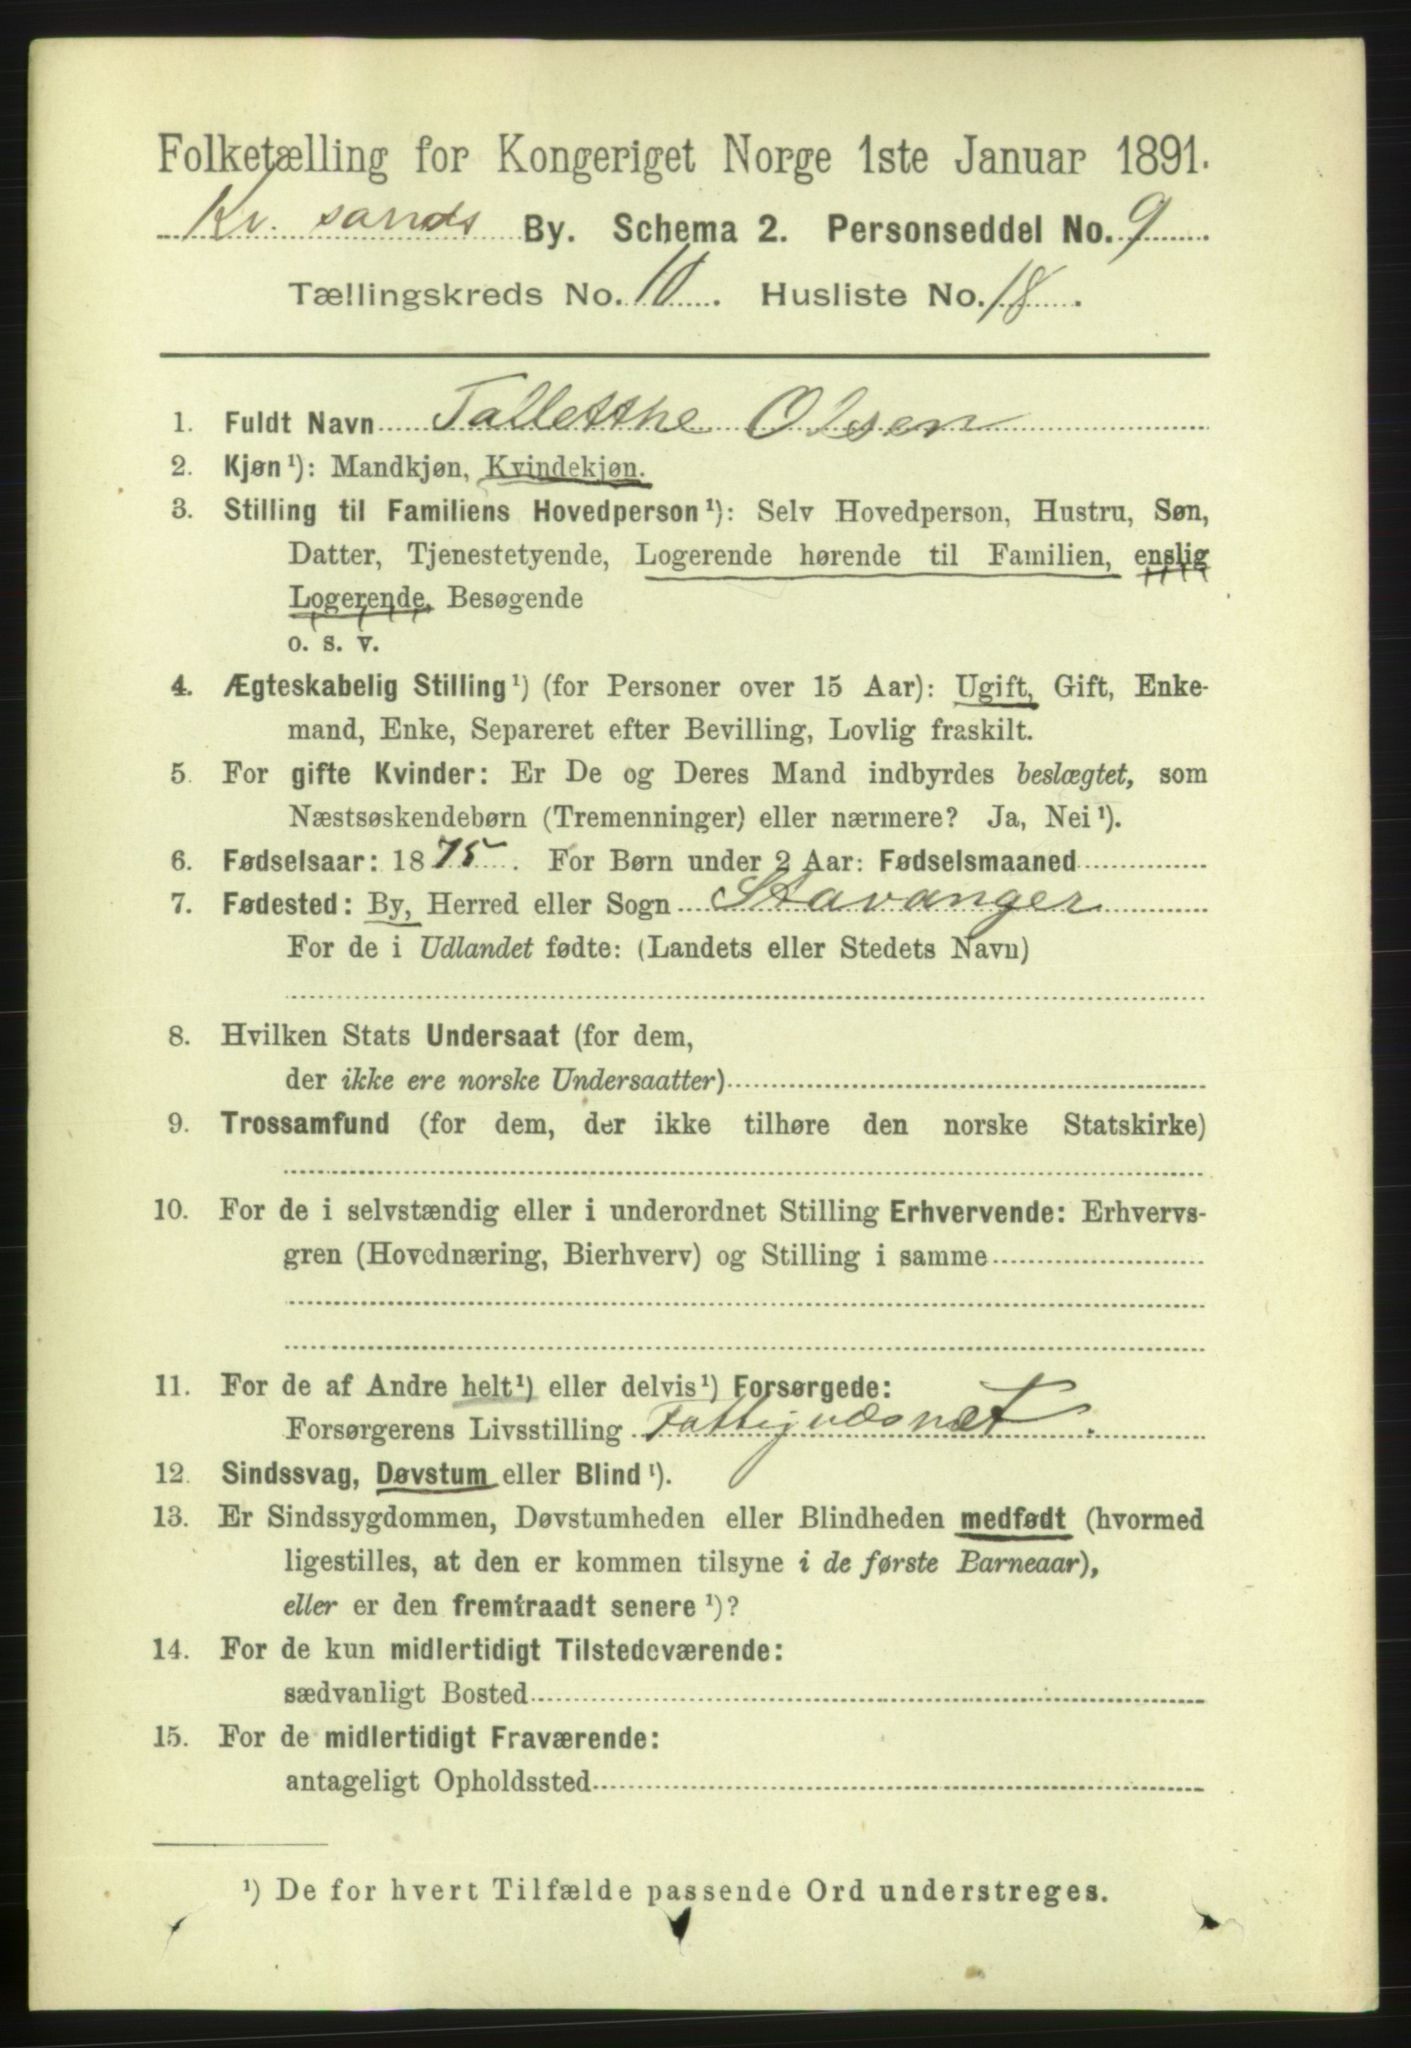 Folketælling for Kongeriget Norge 1ste Januar 1891.
Kr. sands By. Schema 2. Personseddel No. 9
Tællingskreds No. 10. Husliste No. 18.
1. Fuldt Navn Talletthe Olsen
2. Kjøn ¹): Mandkjøn, Kvindekjøn.
3. Stilling til Familiens Hovedperson ¹): Selv Hovedperson, Hustru, Søn,
Datter, Tjenestetyende, Logerende hørende til Familien, enslig
Logerende, Besøgende
o. s. v.
4. Ægteskabelig Stilling ¹) (for Personer over 15 Aar): Ugift, Gift, Enke-
mand, Enke, Separeret efter Bevilling, Lovlig fraskilt.
5. For gifte Kvinder: Er De og Deres Mand indbyrdes beslægtet, som
Næstsøskendebørn (Tremenninger) eller nærmere? Ja, Nei ¹).
6. Fødselsaar: 1875. For Børn under 2 Aar: Fødselsmaaned
7. Fødested: By, Herred eller Sogn Stavanger
For de i Udlandet fødte: (Landets eller Stedets Navn)
8. Hvilken Stats Undersaat (for dem,
der ikke ere norske Undersaatter)
9. Trossamfund (for dem, der ikke tilhøre den norske Statskirke)
10. For de i selvstændig eller i underordnet Stilling Erhvervende: Erhvervs-
gren (Hovednæring, Bierhverv) og Stilling i samme
11. For de af Andre helt ¹) eller delvis ¹) Forsørgede:
Forsørgerens Livsstilling Fattigvæsnet.
12. Sindssvag, Døvstum eller Blind ¹).
13. Er Sindssygdommen, Døvstumheden eller Blindheden medfødt (hvormed
ligestilles, at den er kommen tilsyne i de første Barneaar),
eller er den fremtraadt senere ¹)?
14. For de kun midlertidigt Tilstedeværende:
sædvanligt Bosted
15. For de midlertidigt Fraværende:
antageligt Opholdssted
¹) De for hvert Tilfælde passende Ord understreges.